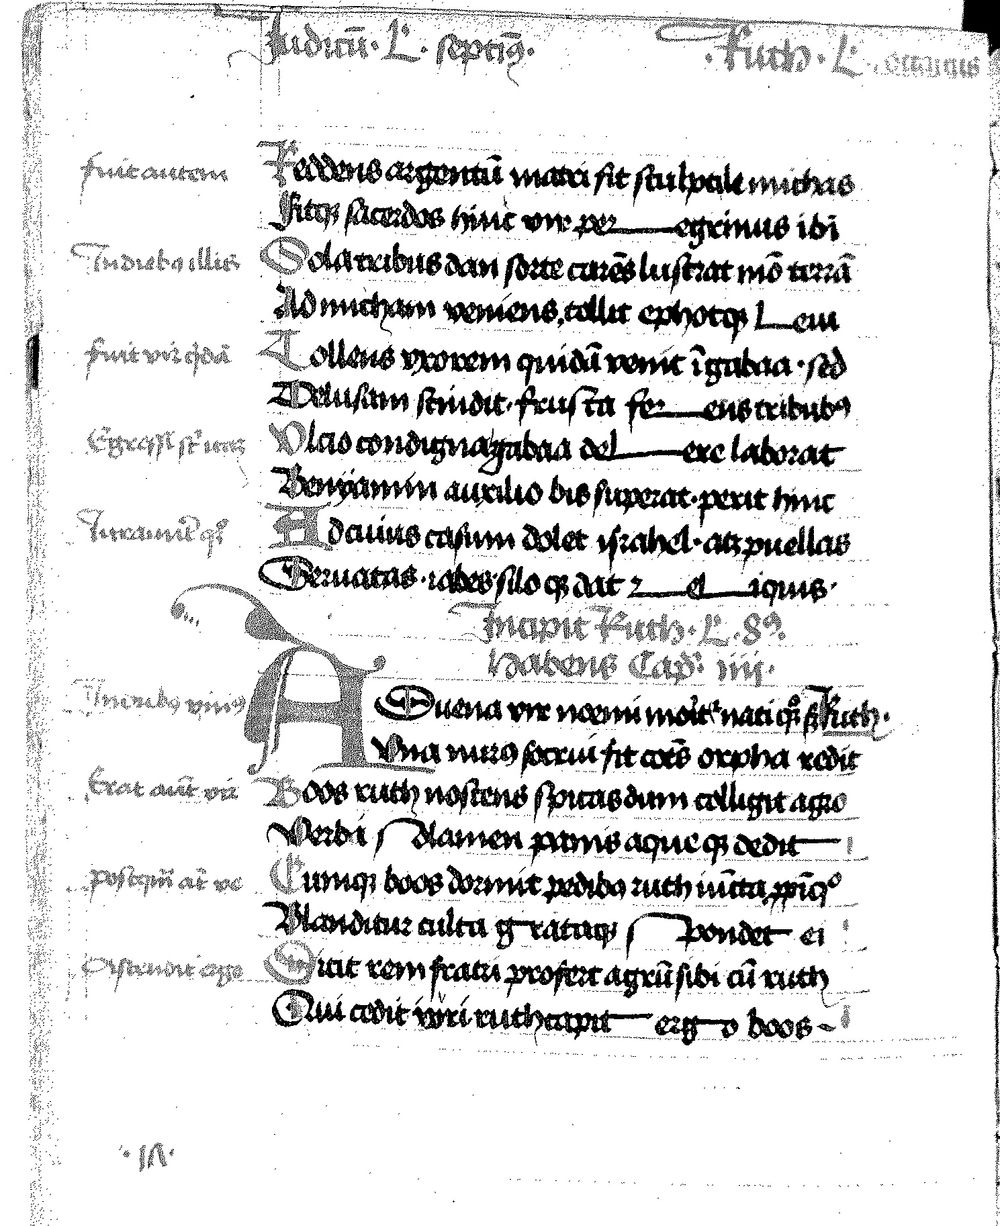 Judicū · L · septiꝰ ·
· Ruth · L · octauus
fuit autem
Reddens argentū matri fit sculptile michas
Fitqꝫ sacerdos hinc vir per egrinus ibi
In diebꝰ illis
Sola tribus dan sorte carēs lustrat mō terrā
Ad micham veniens, tollit ephotqꝫ Leui
fuit vir qͥdā
Tollens vxorem quidā venit ī gabaa · sed
Delusam scindit · frusta fer ens tribubꝰ
Egressi sūt itaqꝫ
Vlcio condigna gabaa del ere laborat
Benyamin auxilio bis superat · perit hinc
Iurauerūt qͦqꝫ
Ad cuius casum dolet israhel · atqꝫ puellas
Seruatas · iabes silo qꝫ dat r el iquis ·
Incipit Ruth · L · 8ꝰ ·
Habens Capͣ iiij ·
In diebꝰ vniꝰ
Aduena vir noemi moritͬ nati qͦqꝫ sꝫ Ruth ·
Vna nurꝰ socrui fit comēs orpha redit
Erat aūt vir
Boos ruth noscens spicas dum colligit agro
Verba solamen panis aque qꝫ dedit
postqͣm aūt ve
Cumqꝫ boos dormit pedibꝰ ruth iūcta ꝓpīqͦ
Blanditur culta grataqꝫ spondet ei
Ascendit ergo
Dicit rem fratri profert agrū sibi cū ruth
Qui cedit iuri ruth capit ergo boos